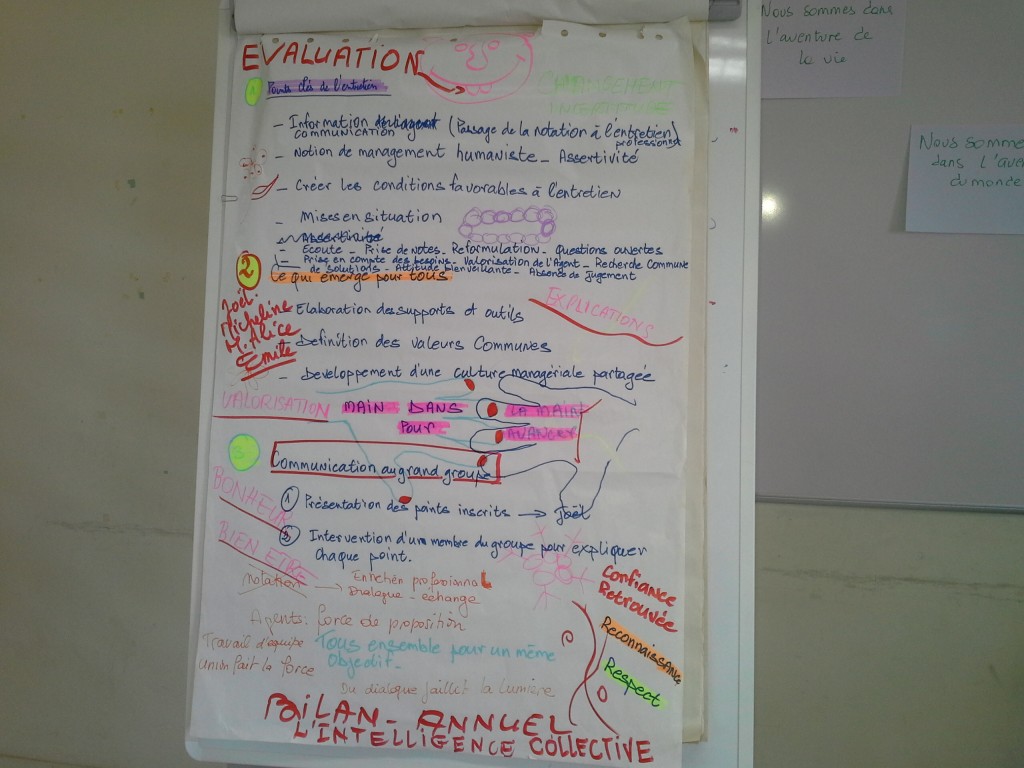 EVALUATION
CHANGEMENT
INCERTITUDE
1 Points clés de l'entretien
- Information (Passage de la notation à l'entretien)
COMMUNICATION professionnel
- Notion de management humaniste - Assertivité
- Créer les conditions favorables à l'entretien
- Mises en situation
Assertivité
- Ecoute - Prise de notes - Reformulation - Questions ouvertes
- Prise en compte des besoins - Valorisation de l'Agent - Recherche Commune
de solutions - Attitude bienveillante - Absence de jugement
2 Ce qui émerge pour tous
EXPLICATIONS
Joël
Micheline
M. Alice
Emile
- Elaboration des supports et outils
- Définition des valeurs Communes
- Developpement d'une culture managériale partagée
VALORISATION
MAIN DANS LA MAIN
POUR AVANCER
3 Communication au grand groupe
BONHEUR
BIEN ETRE
1 Présentation des points inscrits → Joël
2 Intervention d'un membre du groupe pour expliquer
chaque point.
Notation → Entretien professionnel
Dialogue - échange
Agents: force de proposition
Travail d'équipe
union fait la force
Tous ensemble pour un même
objectif -
Du dialogue jaillit la lumière
Confiance
Retrouvée
Reconnaissance
Respect
BILAN - ANNUEL
L'INTELLIGENCE COLLECTIVE
Nous sommes dans
l'aventure de
la vie
Nous somme
dans l'aven
du monde